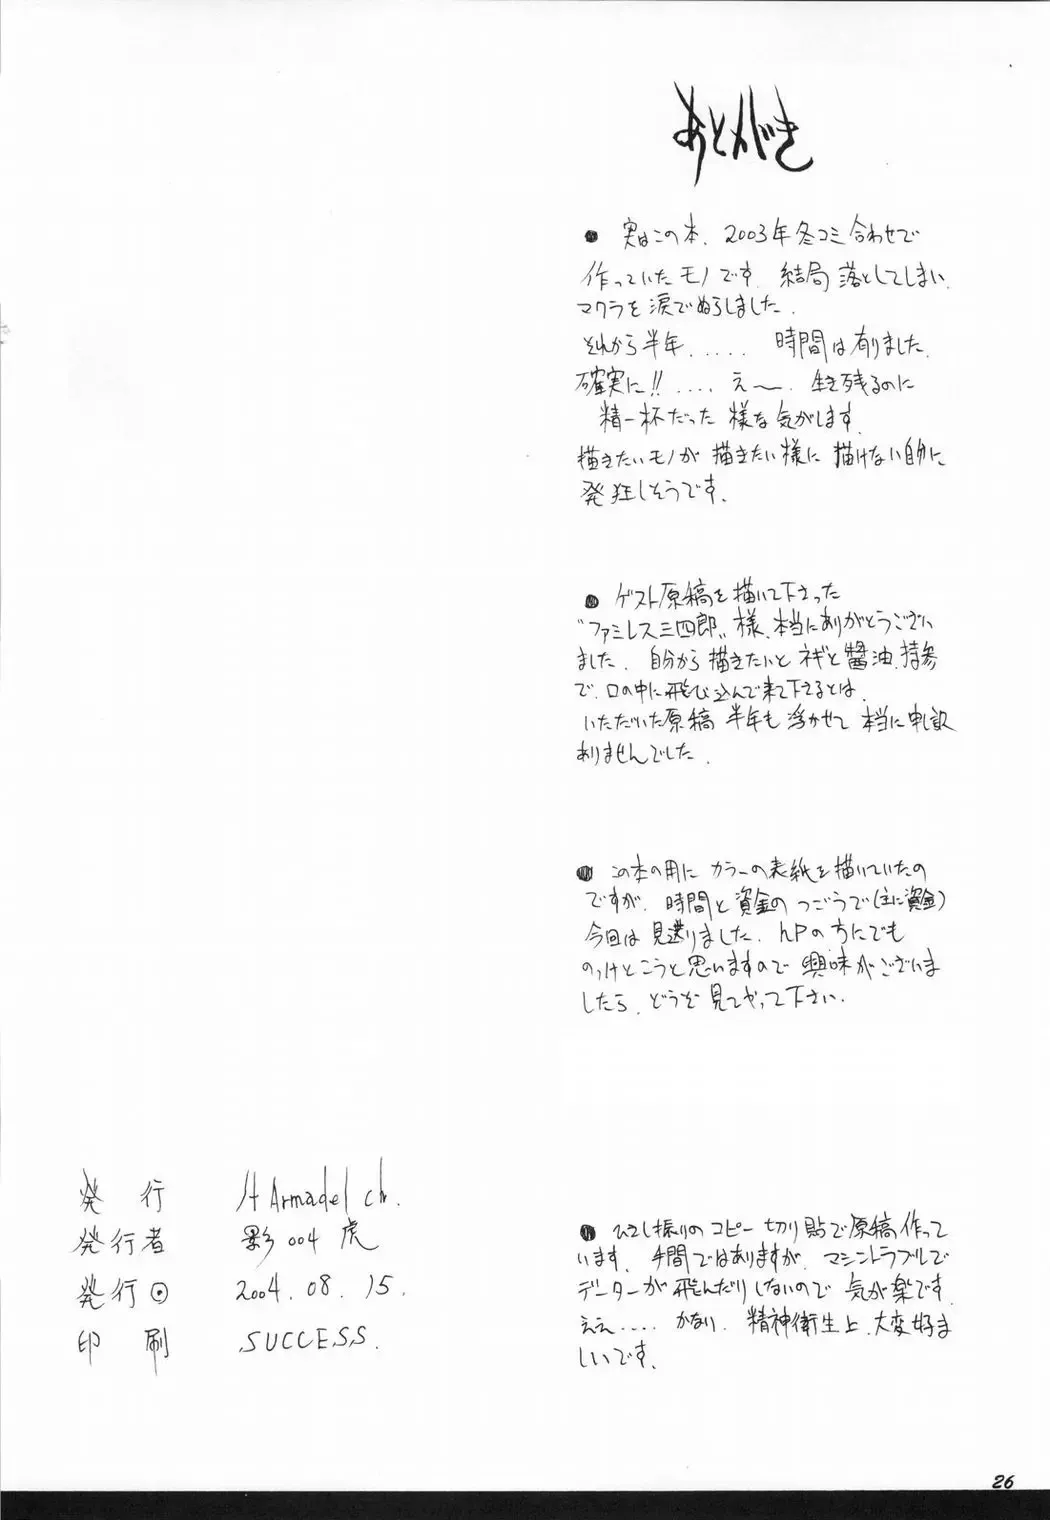 あとがき
● 実はこの本、2003年冬コミ合わせで
作っていたモノです。結局落としてしまい、
マクラを涙でぬらしました。
それから半年、..... 時間は有りました。
確実に!! .... え〜、生き残るのに
精一杯だった様な気がします。
描きたいモノが描きたい様に描けない自分に
発狂しそうです。
● ゲスト原稿を描いて下さった
"ファミレス三四郎"様、本当にありがとうござい
ました。自分から描きたいとネギと醤油、持参
で、口の中に飛び込んで来て下さるとは、
いただいた原稿 半年も浮かせて本当に申し訳
ありませんでした。
● この本の用にカラーの表紙を描いていたの
ですが、時間と資金のつごうで(主に資金)
今回は見送りました。HPの方にでも
のっけとこうと思いますので興味がございま
したら、どうぞ見てやって下さい。
● ひさし振りのコピー切り貼で原稿作って
います。手間ではありますが、マシントラブルで
データーが飛んだりしないので気が楽です。
ええ.... かなり、精神衛生上、大変好ま
しいです。
発行 H Armadel ch.
発行者 影004虎
発行日 2004.08.15.
印刷 SUCCESS.
26